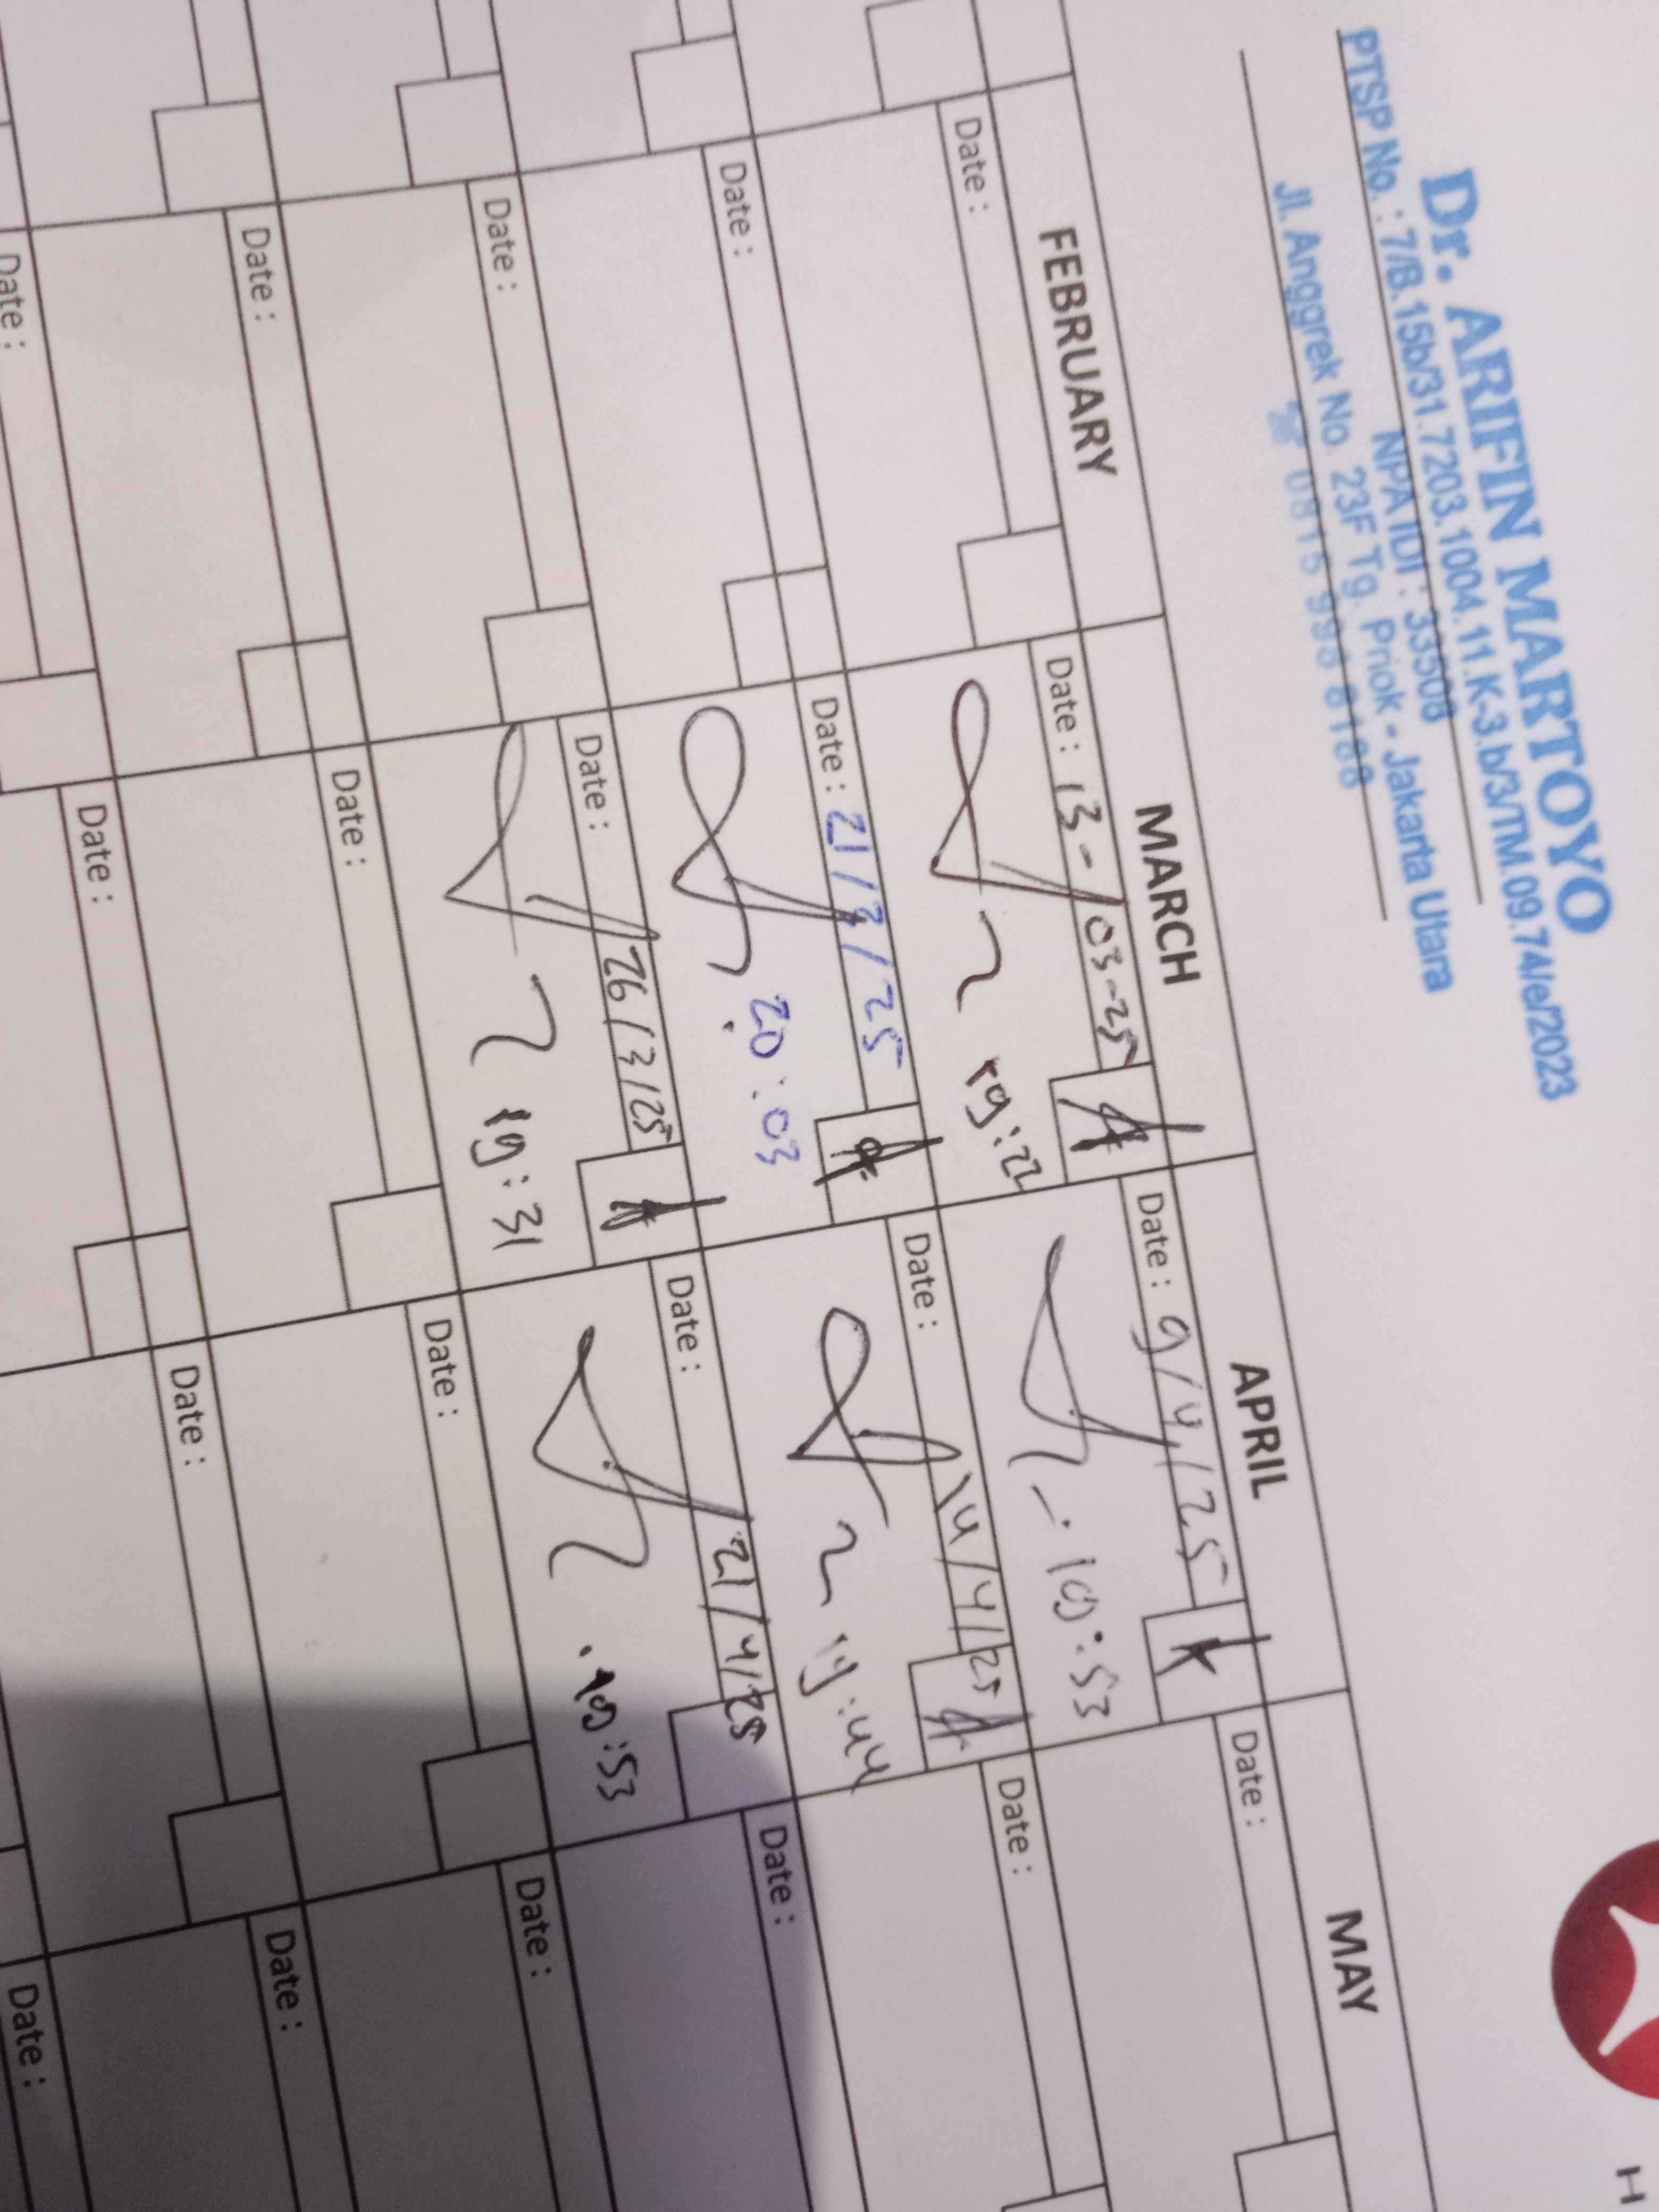 Dr. ARIFIN MARTOYO
PTSP No. : 7/B.15b/31.7203.1004.11.K-3.b/3/TM.09.74/e/2023
NPA IDI : 33508
Jl. Anggrek No. 23F Tg. Priok - Jakarta Utara
☎ 0815 998 8188
H
FEBRUARY MARCH APRIL MAY
Date : Date : 13-03-25 Date : 9/4/25 Date :
19:22 19:53
Date : Date : 21/3/25 Date : 14/4/25 Date :
20:03 19:44
Date : Date : 26/3/25 Date : 21/4/25 Date :
19:31 19:53
Date : Date : Date : Date :
Date : Date : Date : Date :
Date :